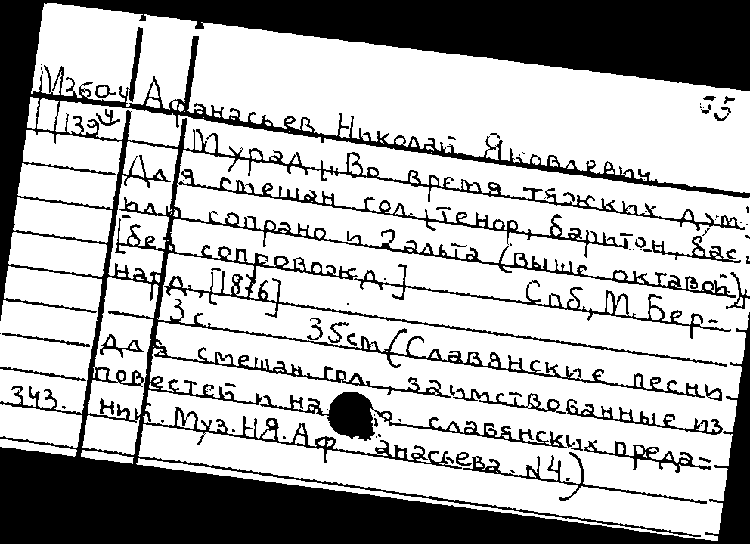 55
М360-4 Афанасьев, Николай Яковлевич.
П 139ч Мурад [„Во время тяжких дум"
Для смешан гол. [тенор, баритон, бас=
или сопрано и 2 альта (выше октавой)]
[без сопровожд.] Спб., М. Бер-
нард., [1876]
3 с. 35cm (Славянские песни
для смешан. гол., заимствованные из
повестей и на славянских преда=
343. ний. Муз. Н.Я. Афанасьева. N4.)